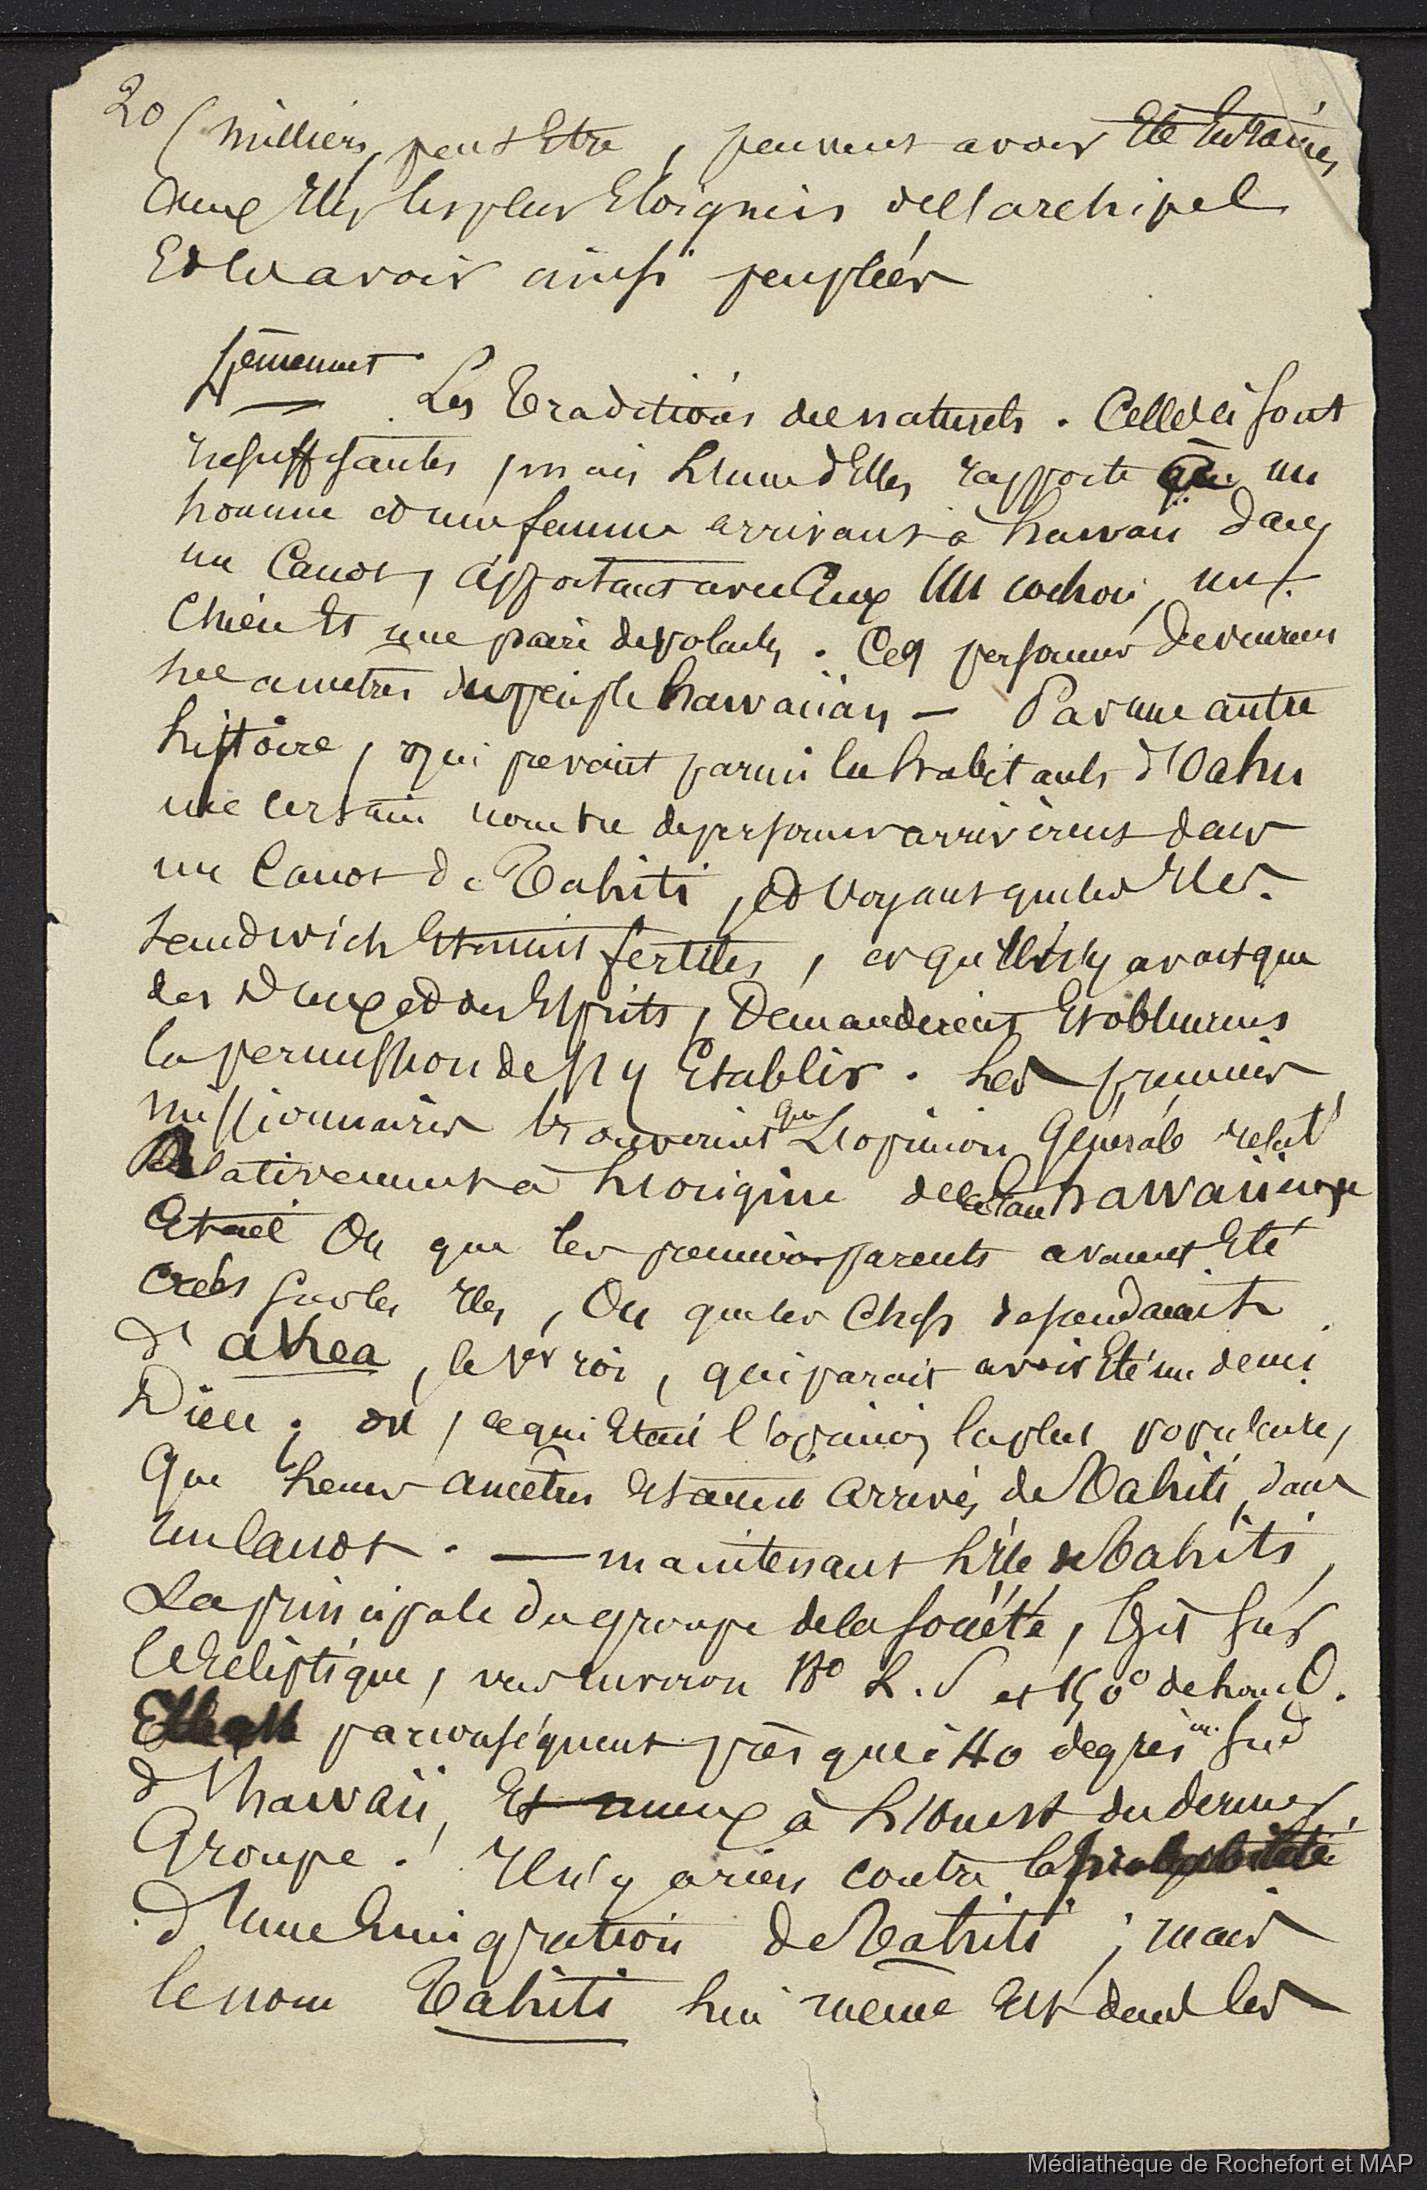 20
( milliers, peut Etre, peuvent avoir Eté Entrainés
aux Iles les plus Eloignées de l'archipel
Et les avoir ainsi peuplées
Les Traditions des naturels. Celles ci sont
insuffisantes, mais L'une d'Elles rapporte qu' un
homme et une femme arrivant à hawaii dans
un Canot, apportant avec Eux Un cochon, un
Chien Et une paire de volailles. Ces personnes devinrent
les ancetres du peuple hawaiian — Par une autre
histoire, qui prevaut parmi les habitants d'Oahu
une certain nombre de personnes arrivèrent dans
un Canot de Tahiti, Et voyant que les Iles
Sandwich Etaient fertiles, et qu'il n'y avait que
des Dieux et des Esprits, Demanderent Et obtinrent
la permission de s'y Etablir. Les premiers
missionnaires trouverent que L'opinion Générale relat
ativement à L'origine de la hawaiienne
Etait Ou que les premiers parents avaient Eté
créés sur les Iles, Ou que les Chefs dependaient
d' akea, le 1er roi, qui parait avoir Eté un demi
Dieu; ou, ce qui Etait l'opinion la plus populaire,
Que leurs ancêtres Etaient arrivés de Tahiti, dans
un Canot. — maintenant L'Ile de Tahiti,
La principale du groupe de la société, Git sur
L'Ecliptique, vers environ 18° L. S et 150° de Lon. O.
par conséquent près que 40 degrés au Sud
d'hawaii, Et mieux à L'Ouest du dernier
Groupe. Il n'y a rien contre la probabilité
d'Une Emigration de Tahiti; mais
le nom Tahiti lui même Est dans les
Médiathèque de Rochefort et MAP